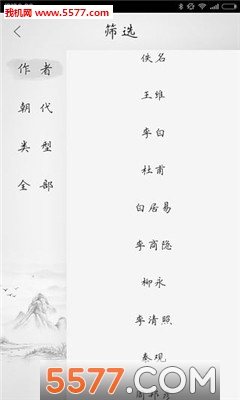 我机网
www.5577.com
筛选
作者
朝代
类型
全部
佚名
王维
李白
杜甫
白居易
李商隐
柳永
李清照
秦观
5577
.com